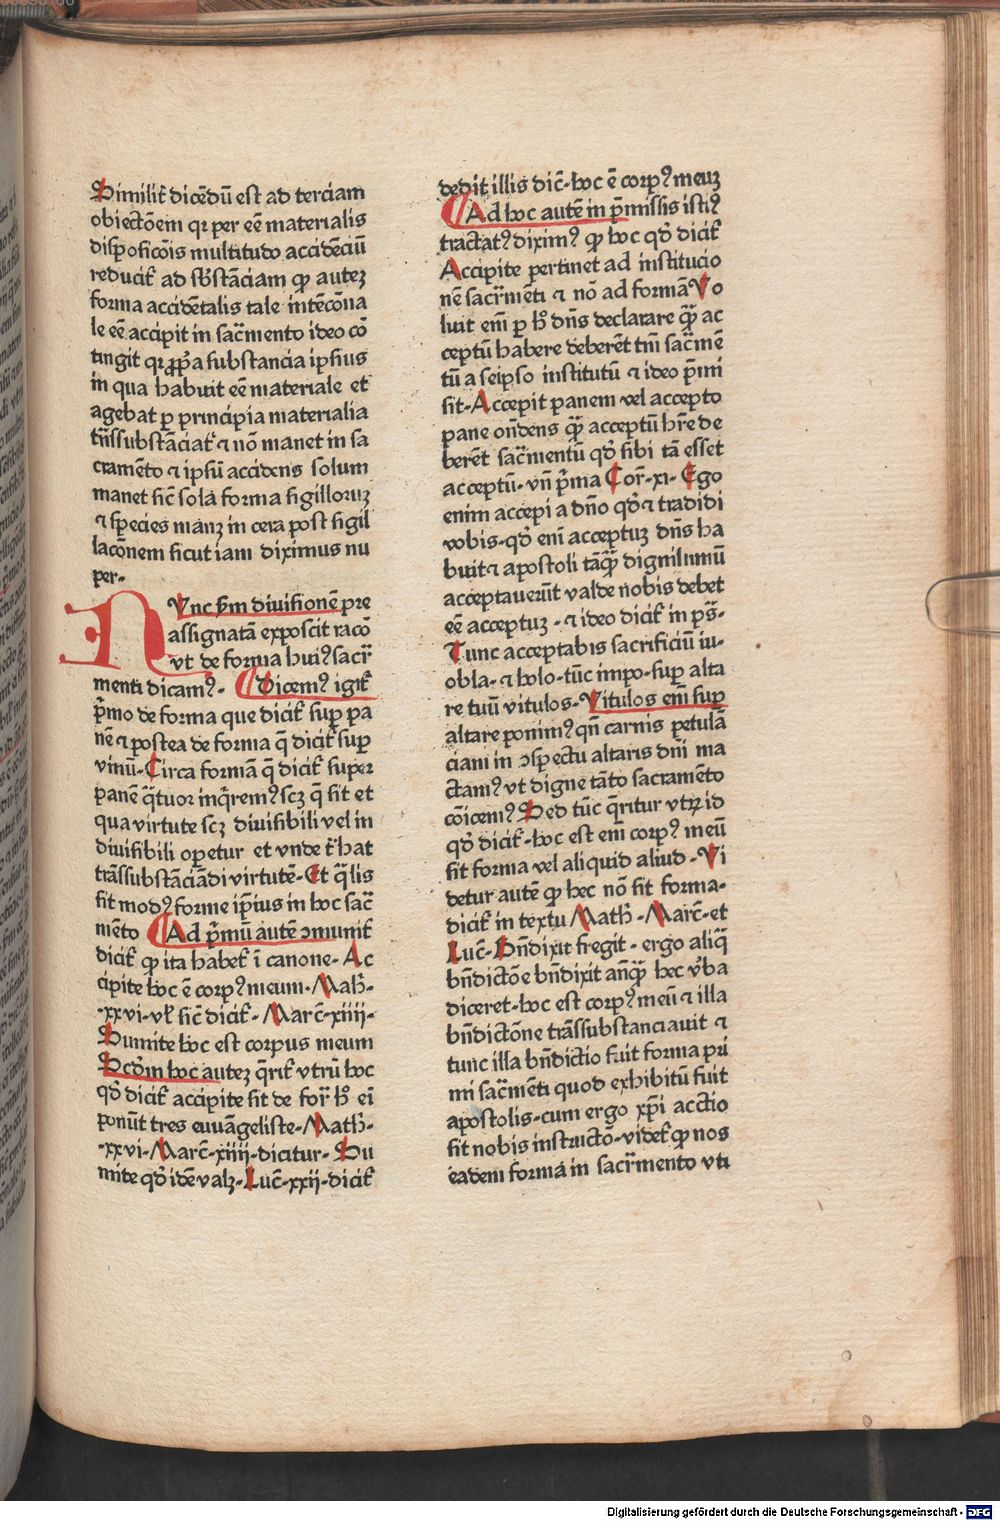 Similit̃ dicẽdũ est ad terciam
obiectõem qꝛ per eẽ materialis
dispositiõis multitudo accidẽciũ
reducit̃ ad sb̃stãciam ꝙ autez
forma accidẽtalis tale intẽcõna
le eẽ accipit in sac̃mento ideo cõ
tingit qꝛ ꝓp̃a substancia ipsius
in qua habuit eẽ materiale et
agebat ꝑ principia materialia
trãssubstãciat̃ ⁊ nõ manet in sa
cramẽto ⁊ ipsũ accidens solum
manet sic̃ sola forma sigilloruz
⁊ species manꝫ in cera post sigil
lacõnem sicut iam diximus nu
per.
NVnc scd̃m diuisionẽ pre
assignatã exposcit racõ
vt de forma huiꝰ sacr̃
menti dicamꝰ. Dicemꝰ igit̃
p̃mo de forma que dicit̃ suꝑ pa
nẽ ⁊ postea de forma q̃ dicit̃ suꝑ
vinũ. Circa formã q̃ dicit̃ super
panẽ q̃tuor inq̃remꝰ scꝫ q̃ sit et
qua virtute scꝫ diuisibili vel in
diuisibili oꝑetur et vnde t̃hat
trãssubstãciãdi virtutẽ. Et q̃lis
sit modꝰ forme ip̃ius in hoc sac̃
mẽto Ad p̃mũ autẽ ꝯmunit̃
dicit̃ ꝙ ita habet̃ ĩ canone. Ac
cipite hoc ẽ corpꝰ meum. Math̃.
.xxvi. vł sic̃ dicit̃. Marc̃. xiiii.
Sumite hoc est corpus meum
Scd̃m hoc autez q̃rit̃ vtrũ hoc
qd̃ dicit̃ accipite sit de for̃ h̃ eĩ
ponũt tres euuãgeliste. Math̃.
.xxvi. Marc̃. xiiii. dicitur. Su
mite qd̃ idẽ valꝫ. Luc̃. xxij. dicit̃
dedit illis dic̃. hoc ẽ corpꝰ meuz
Ad hoc autẽ in p̃missis istiꝰ
tractatꝰ diximꝰ ꝙ hoc qd̃ dicit̃
Accipite pertinet ad institucio
nẽ sacr̃menti ⁊ nõ ad formã Vo
luit eñi ꝑ h̃ dñs declarare q̃ ac
ceptũ habere deberẽt tm̃ sac̃mẽ
tũ a seipso institutũ ⁊ ideo p̃mi
sit. Accepit panem vel accepto
pane oñdens q̃ acceptũ hr̃e de
berẽt sacr̃mentũ qd̃ sibi tã esset
acceptũ. vñ p̃ma Cor̃. xi. Ego
enim accepi a dño qd̃ ⁊ tradidi
vobis. qd̃ eñi acceptuz dñs ha
buit ⁊ apostoli tãq̃ dignissimũ
acceptauerũt valde nobis debet
eẽ acceptuz. ⁊ ideo dicit̃ in ps̃.
Tunc acceptabis sacrificiũ iu.
obla. ⁊ holo. tũc impo. suꝑ alta
re tuũ vitulos. Vitulos eñi suꝑ
altare ponimꝰ qñ carnis petulã
ciam in ꝯspectu altaris dñi ma
ctamꝰ vt digne tãto sacramẽto
cõicemꝰ Sed tũc q̃ritur vtꝝ id
qd̃ dicit̃. hoc est eñi corpꝰ meũ
sit forma vel aliquid aliud. Vi
detur autẽ ꝙ hec nõ sit forma.
dicit̃ in textu Math̃. Marc̃. et
Luc̃. Bñdixit fregit. ergo aliq̃
bñdictõe bñdixit anq̃ hec v̓ba
diceret. hoc est corpꝰ meũ ⁊ illa
bñdictõne trãssubstanciauit ⁊
tunc illa bñdictio fuit forma pri
mi sacr̃menti quod exhibitũ fuit
apostolis. cum ergo xp̃i acctio
sit nobis instructõ. videt̃ ꝙ nos
eadem forma in sacr̃mento vti
Digitalisierung gefördert durch die Deutsche Forschungsgemeinschaft - DFG